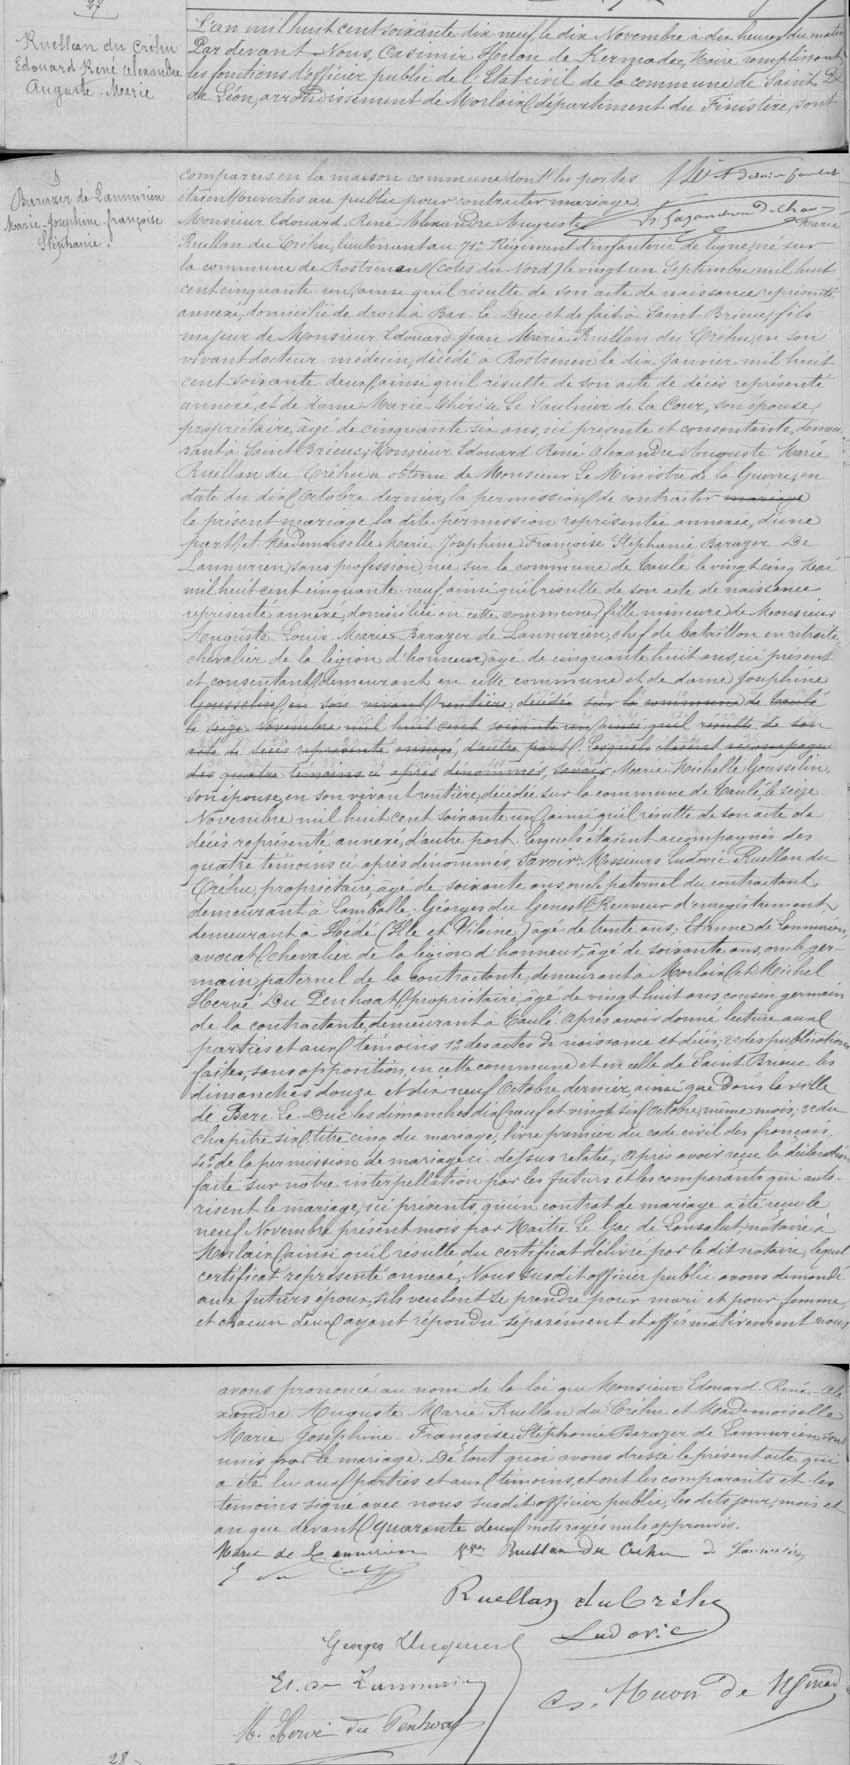 27
Ruellan du Créhu
Edouard René Alexandre
Auguste Marie
L'an mil huit cent soixante dix neuf, le dix Novembre à dix heures du matin
Par devant Nous, Casimir Huon de Kermadec, Maire remplissant
les fonctions d'officier public de l'Etat civil de la commune de Saint Pol
de Léon, arrondissement de Morlaix, département du Finistère, sont
&
Barazer de Lannurien
Marie-Josephine françoise
Stéphanie.
comparus en la maison commune dont les portes
étaient ouvertes au public pour contracter mariage
Monsieur Edouard René Alexandre Auguste Marie
Ruellan du Créhu, lieutenant au 71e Régiment d'infanterie de ligne, né sur
la commune de Rostrenen (côtes du Nord) le vingt un Septembre mil huit
cent cinquante un, ainsi qu'il résulte de son acte de naissance représenté
annexé, domicilié de droit à Bar-le Duc et de fait à Saint Brieuc, fils
majeur de Monsieur Edouard Jean Marie Ruellan du Créhu, en son
vivant docteur médecin, décédé à Rostrenen le dix Janvier mil huit
cent soixante deux, ainsi qu'il résulte de son acte de décès représenté
annexé, et de dame Marie Thérèse Le Saulnier de la Cour, son épouse,
propriétaire, âgée de cinquante six ans, ici présente et consentante, demeu-
rant à Saint Brieuc, Monsieur Edouard René Alexandre Auguste Marie
Ruellan du Créhu a obtenu de Monsieur Le Ministre de la Guerre, en
date du dix Octobre dernier, la permission de contracter mariage
le présent mariage la dite permission représentée annexée, d'une
part, et Mademoiselle Marie Josephine Françoise Stéphanie Barazer De
Lannurien, sans profession, née sur la commune de Taulé le vingt cinq Mai
mil huit cent cinquante neuf, ainsi qu'il résulte de son acte de naissance
représenté annexé, domiciliée en cette commune, fille mineure de Monsieur
Auguste Louis Marie Barazer de Lannurien, chef de bataillon en retraite,
chevalier de la légion d'honneur, âgé de cinquante huit ans, ici présent
et consentant, demeurant en cette commune et de dame Joséphine
Gousselin, en son vivant rentière, décédée sur la commune de Taulé
le seize Novembre mil huit cent soixante un, ainsi qu'il résulte de son
acte de décès représenté annexé, d'autre part. Lesquels étaient accompagnés
des quatre témoins ci après dénommés, savoir. Marie Michelle Gousselin,
son épouse, en son vivant rentière, décédée sur la commune de Taulé, le seize
Novembre mil huit cent soixante un, ainsi qu'il résulte de son acte de
décès représenté annexé, d'autre part. Lesquels étaient accompagnés des
quatre témoins ci après dénommés, savoir: Messieurs Ludovic Ruellan du
Créhu, propriétaire, âgé de soixante ans, oncle paternel du contractant
demeurant à Lamballe, Georges du Receveur d'enregistrement
demeurant à Hédé (Ille et Vilaine) âgé de trente ans; Etienne de Lannurien,
avocat, chevalier de la légion d'honneur, âgé de soixante ans, oncle ger-
main paternel de la contractante, demeurant à Morlaix, et Michel
Hervé Du Penhoat, propriétaire, âgé de vingt huit ans, cousin germain
de la contractante, demeurant à Taulé. Après avoir donné lecture aux
parties et aux témoins 1° des actes de naissance et décès, 2° des publications
faites, sans opposition, en cette commune et en celle de Saint Brieuc les
dimanches douze et dix neuf Octobre dernier, ainsi que dans la ville
de Bar le Duc les dimanches dix neuf et vingt six Octobre, même mois, 3° du
chapitre six, titre cinq du mariage, livre premier du code civil des français,
4° de la permission de mariage ci-dessus relatée, Après avoir reçu la déclaration
faite sur notre interpellation par les futurs et les comparants qui auto-
risent le mariage, ici présents, qu'un contrat de mariage a été reçu le
neuf Novembre présent mois par Maître Le Gac de Lansalut, notaire à
Morlaix, ainsi qu'il résulte du certificat délivré par le dit notaire, lequel
certificat représenté annexé, Nous susdit officier public avons demandé
aux futurs époux s'ils veulent se prendre pour mari et pour femme,
et chacun d'eux ayant répondu séparément et affirmativement nous
avons prononcé au nom de la loi que Monsieur Edouard René Ale-
xandre Auguste Marie Ruellan du Créhu et Mademoiselle
Marie Josephine Françoise Stéphanie Barazer de Lannurien sont
unis par le mariage. De tout quoi avons dressé le présent acte qui
a été lu aux parties et aux témoins, et ont les comparants et les
témoins signé avec nous susdit officier public, les dits jour, mois et
an que devant. Quarante deux mots rayés nuls approuvés.
Marie de Lannurien Ruellan du Créhu de Lannurien
Ruellan du Créhu
Ludovic
Georges
Et. de Lannurien
M. Hervé du Penhoat
Cs. Huon de Kmadec
28